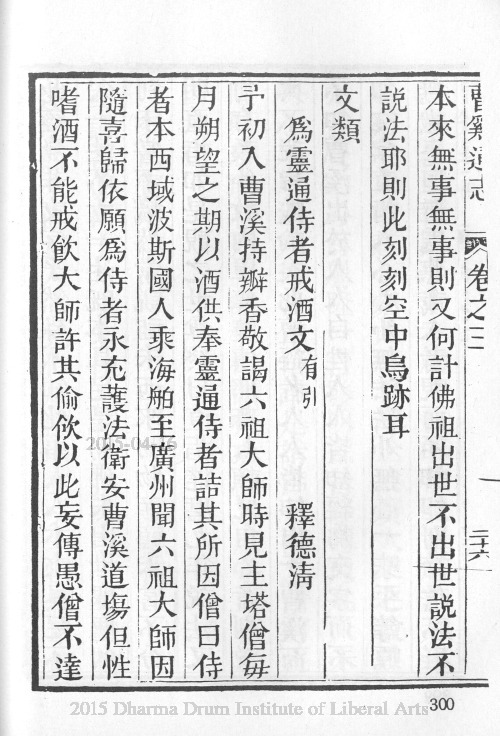 曹谿通志　卷之三　二十六
本來無事無事則又何計佛祖出世不出世說法不
說法耶則此刻刻空中鳥跡耳
文類
爲靈通侍者戒酒文有引　釋德清
予初入曹溪持瓣香敬謁六祖大師時見主塔僧每
月朔望之期以酒供奉靈通侍者詰其所因僧曰侍
者本西域波斯國人乘海舶至廣州聞六祖大師因
隨喜歸依願爲侍者永充護法衛安曹溪道場但性
嗜酒不能戒飮大師許其偷飮以此妄傳愚僧不達
300
2015-04-16
2015 Dharma Drum Institute of Liberal Arts